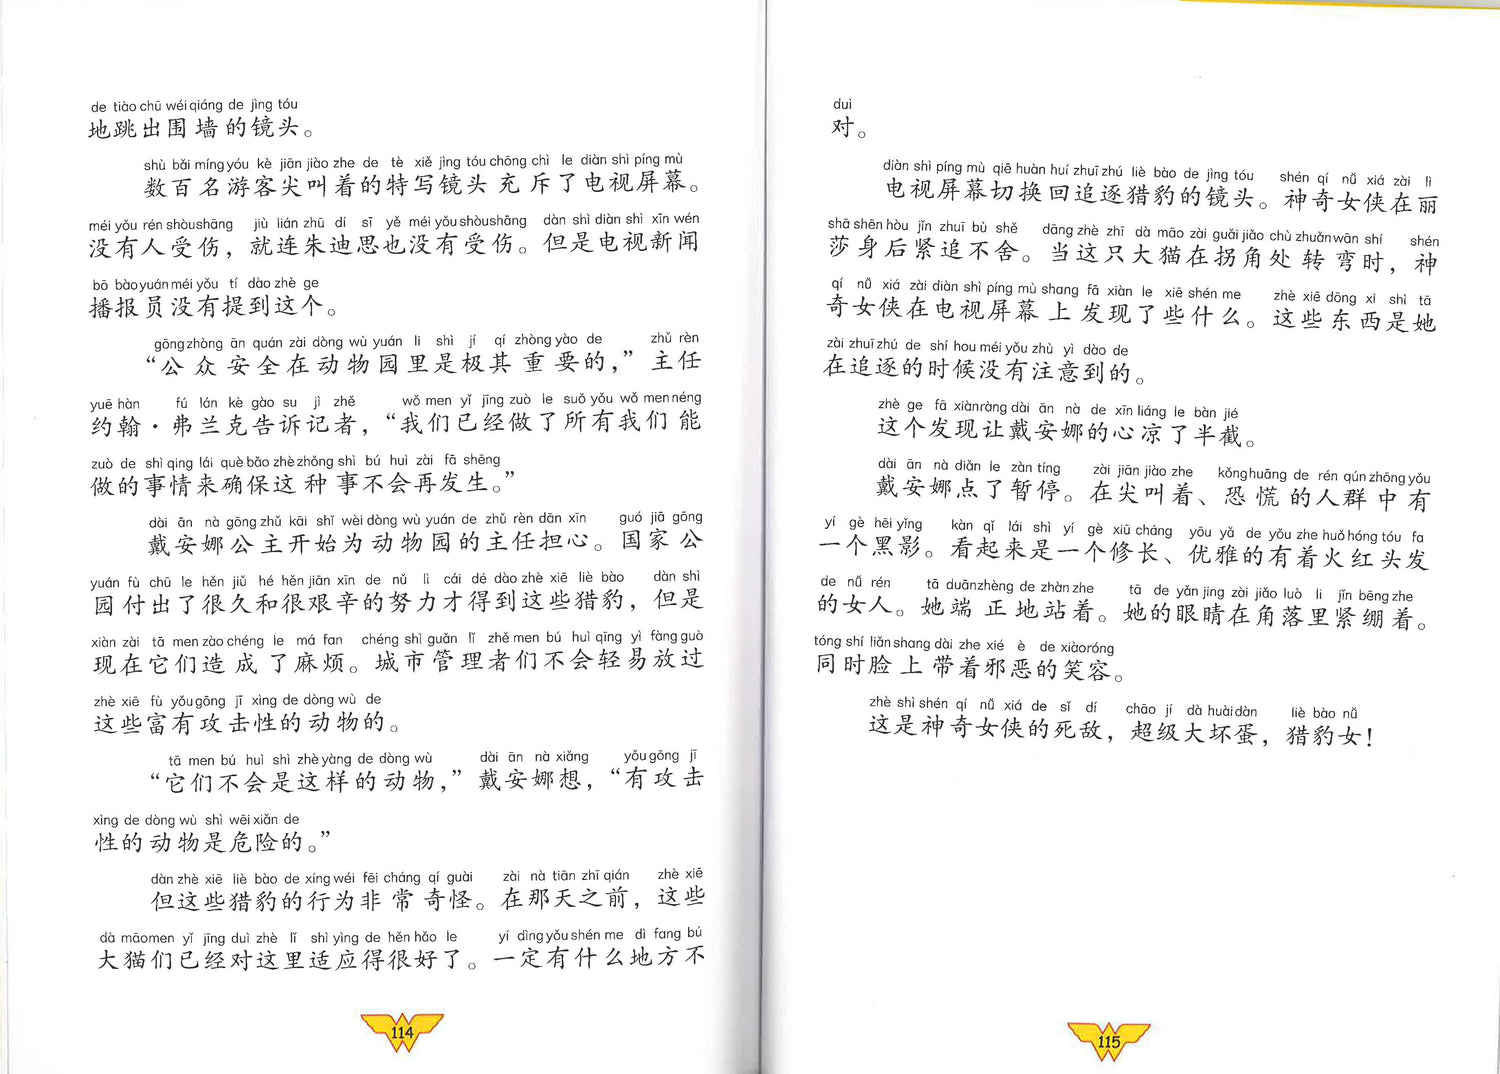 de tiào chū wéi qiáng de jìng tóu
地跳出围墙的镜头。
shù bǎi míng yóu kè jiān jiào zhe de tè xiě jìng tóu chōng chì le diàn shì píng mù
数百名游客尖叫着的特写镜头充斥了电视屏幕。
méi yǒu rén shòu shāng jiù lián zhū dí sī yě méi yǒu shòu shāng dàn shì diàn shì xīn wén
没有人受伤，就连朱迪思也没有受伤。但是电视新闻
bō bào yuán méi yǒu tí dào zhè ge
播报员没有提到这个。
gōng zhòng ān quán zài dòng wù yuán li shì jí qí zhòng yào de zhǔ rèn
“公众安全在动物园里是极其重要的，”主任
yuē hàn fú lán kè gào su jì zhě wǒ men yǐ jīng zuò le suǒ yǒu wǒ men néng
约翰·弗兰克告诉记者，“我们已经做了所有我们能
zuò de shì qing lái què bǎo zhè zhǒng shì bú huì zài fā shēng
做的事情来确保这种事不会再发生。”
dài ān nà gōng zhǔ kāi shǐ wèi dòng wù yuán de zhǔ rèn dān xīn guó jiā gōng
戴安娜公主开始为动物园的主任担心。国家公
yuán fù chū le hěn jiǔ hé hěn jiān xīn de nǔ lì cái dé dào zhè xiē liè bào dàn shì
园付出了很久和很艰辛的努力才得到这些猎豹，但是
xiàn zài tā men zào chéng le má fan chéng shì guǎn lǐ zhě men bú huì qīng yì fàng guò
现在它们造成了麻烦。城市管理者们不会轻易放过
zhè xiē fù yǒu gōng jī xìng de dòng wù de
这些富有攻击性的动物的。
tā men bú huì shì zhè yàng de dòng wù dài ān nà xiǎng yǒu gōng jī
“它们不会是这样的动物，”戴安娜想，“有攻击
xìng de dòng wù shì wēi xiǎn de
性的动物是危险的。”
dàn zhè xiē liè bào de xíng wéi fēi cháng qí guài zài nà tiān zhī qián zhè xiē
但这些猎豹的行为非常奇怪。在那天之前，这些
dà māo men yǐ jīng duì zhè lǐ shì yìng de hěn hǎo le yí dìng yǒu shén me dì fang bú
大猫们已经对这里适应得很好了。一定有什么地方不
114
duì
对。
diàn shì píng mù qiē huàn huí zhuī zhú liè bào de jìng tóu shén qí nǚ xiá zài lì
电视屏幕切换回追逐猎豹的镜头。神奇女侠在丽
shā shēn hòu jǐn zhuī bù shě dāng zhè zhī dà māo zài guǎi jiǎo chù zhuǎn wān shí shén
莎身后紧追不舍。当这只大猫在拐角处转弯时，神
qí nǚ xiá zài diàn shì píng mù shang fā xiàn le xiē shén me zhè xiē dōng xi shì tā
奇女侠在电视屏幕上发现了些什么。这些东西是她
zài zhuī zhú de shí hou méi yǒu zhù yì dào de
在追逐的时候没有注意到的。
zhè ge fā xiàn ràng dài ān nà de xīn liáng le bàn jié
这个发现让戴安娜的心凉了半截。
dài ān nà diǎn le zàn tíng zài jiān jiào zhe kǒng huāng de rén qún zhōng yǒu
戴安娜点了暂停。在尖叫着、恐慌的人群中有
yí gè hēi yǐng kàn qǐ lái shì yí gè xiū cháng yōu yǎ de yǒu zhe huǒ hóng tóu fa
一个黑影。看起来是一个修长、优雅的有着火红头发
de nǚ rén tā duān zhèng de zhàn zhe tā de yǎn jing zài jiǎo luò li jǐn bēng zhe
的女人。她端正地站着。她的眼睛在角落里紧绷着。
tóng shí liǎn shang dài zhe xié è de xiào róng
同时脸上带着邪恶的笑容。
zhè shì shén qí nǚ xiá de sǐ dí chāo jí dà huài dàn liè bào nǚ
这是神奇女侠的死敌，超级大坏蛋，猎豹女！
115